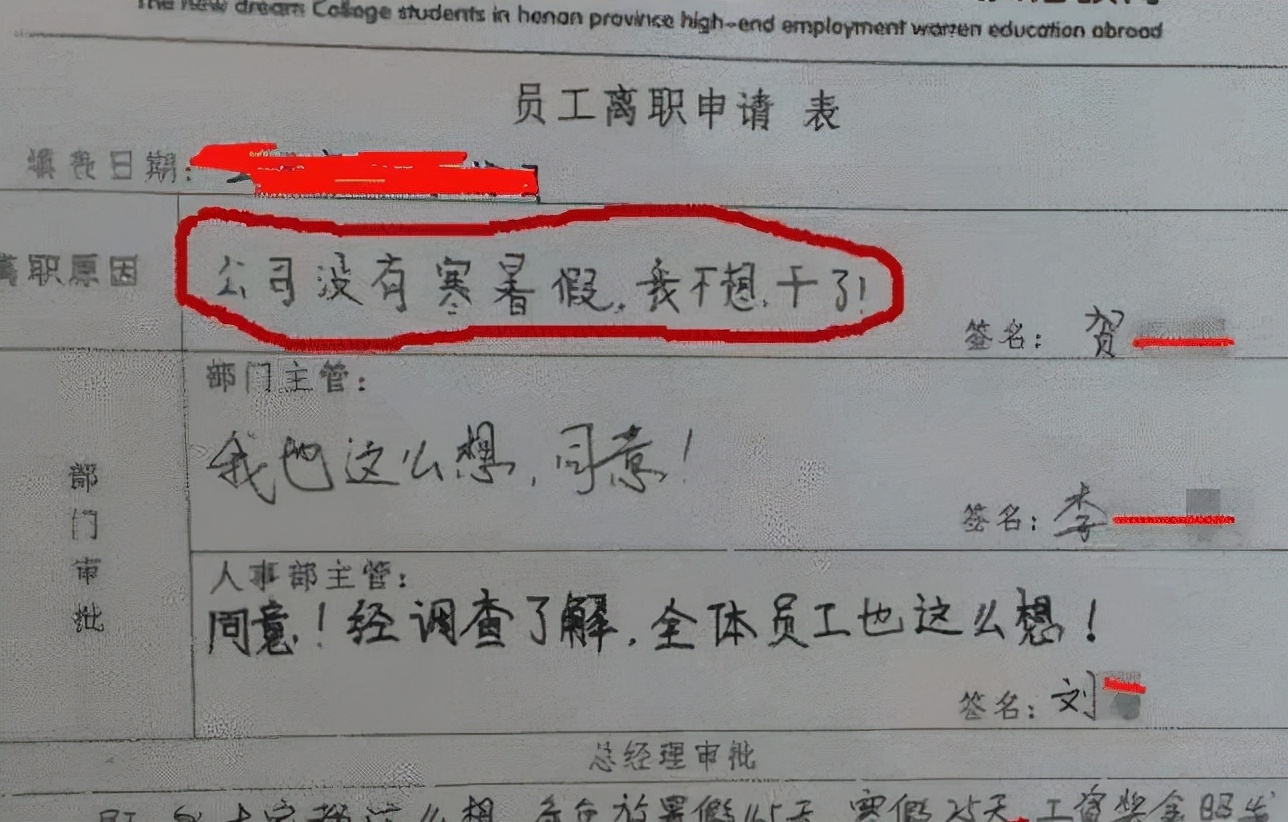 The New dream College students in honan province high-end employment warren education abroad
员工离职申请 表
填表日期:
离职原因
公司没有寒暑假,我不想干了!
签名: 贺
部门审批
部门主管:
我也这么想,同意!
签名: 李
人事部主管:
同意!经调查了解,全体员工也这么想!
签名: 刘
总经理审批
这么想 放暑假45天 寒假25天 工资奖金照发